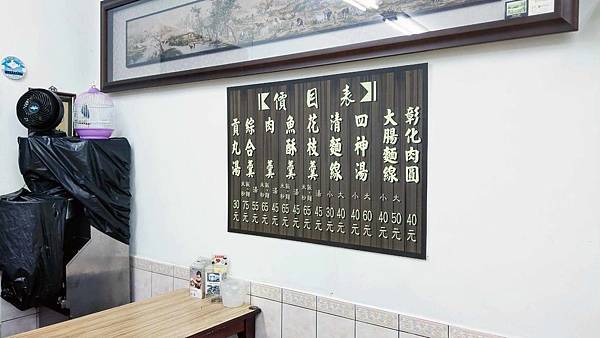 價目表
彰化肉圓 40元
大腸麵線 大 50元 小 40元
四神湯 大 60元 小 40元
清麵線 大 40元 小 30元
花枝羹 湯 45元 飯‧麵 米粉 65元
魚酥羹 湯 45元 飯‧麵 米粉 65元
肉羹 湯 45元 飯‧麵 米粉 65元
綜合羹 湯 55元 飯‧麵 米粉 75元
貢丸湯 30元